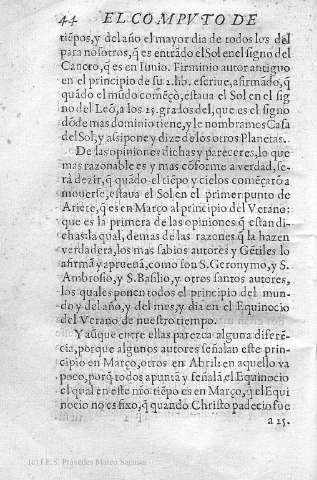 44 EL COMPVTO DE
tiẽpos, y del año el mayor dia de todos los del
para nosotros, q̃ es entrãdo el Sol en el signo del
Cancro, q̃ es en Iunio. Firminio autor antiguo
en el principio de su 2. lib. escriue, afirmãdo, q̃
quãdo el mũdo comẽçò, estaua el Sol en el sig
no del Leõ, a los 15. grados del, que es el signo
dõde mas dominio tiene, y le nombramos Casa
del Sol, y assi pone y dize de los otros Planetas.
De las opiniones dichas y pareceres, lo que
mas razonable es y mas cõforme a verdad, se-
rà dezir, q̃ quãdo el tiẽpo y cielos comẽçarõ a
mouerse, estaua el Sol en el primer punto de
Ariete, q̃ es en Março al principio del Verano:
que es la primera de las opiniones q̃ estan di-
chas: la qual, demas de las razones q̃ la hazen
verdadera, los mas sabios autores y Gẽtiles lo
afirmã y aprueuã, como son S. Geronymo, y S.
Ambrosio, y S. Basilio, y otros santos autores,
los quales ponen todos el principio del mun-
do y del año, y del mes, y dia en el Equinocio
del Verano de nuestro tiempo.
Y aũque entre ellas parezca alguna diferẽ-
cia, porque algunos autores señalan este prin-
cipio en Março, otros en Abril: en aquello va
poco, porq̃ todos apuntã y señalã el Equinocio
el qual en este nr̃o tiẽpo es en Março, q̃ el Equi
nocio no es fixo, q̃ quando Christo padecio fue
a 25.
(c) I.E.S. Práxedes Mateo Sagasta